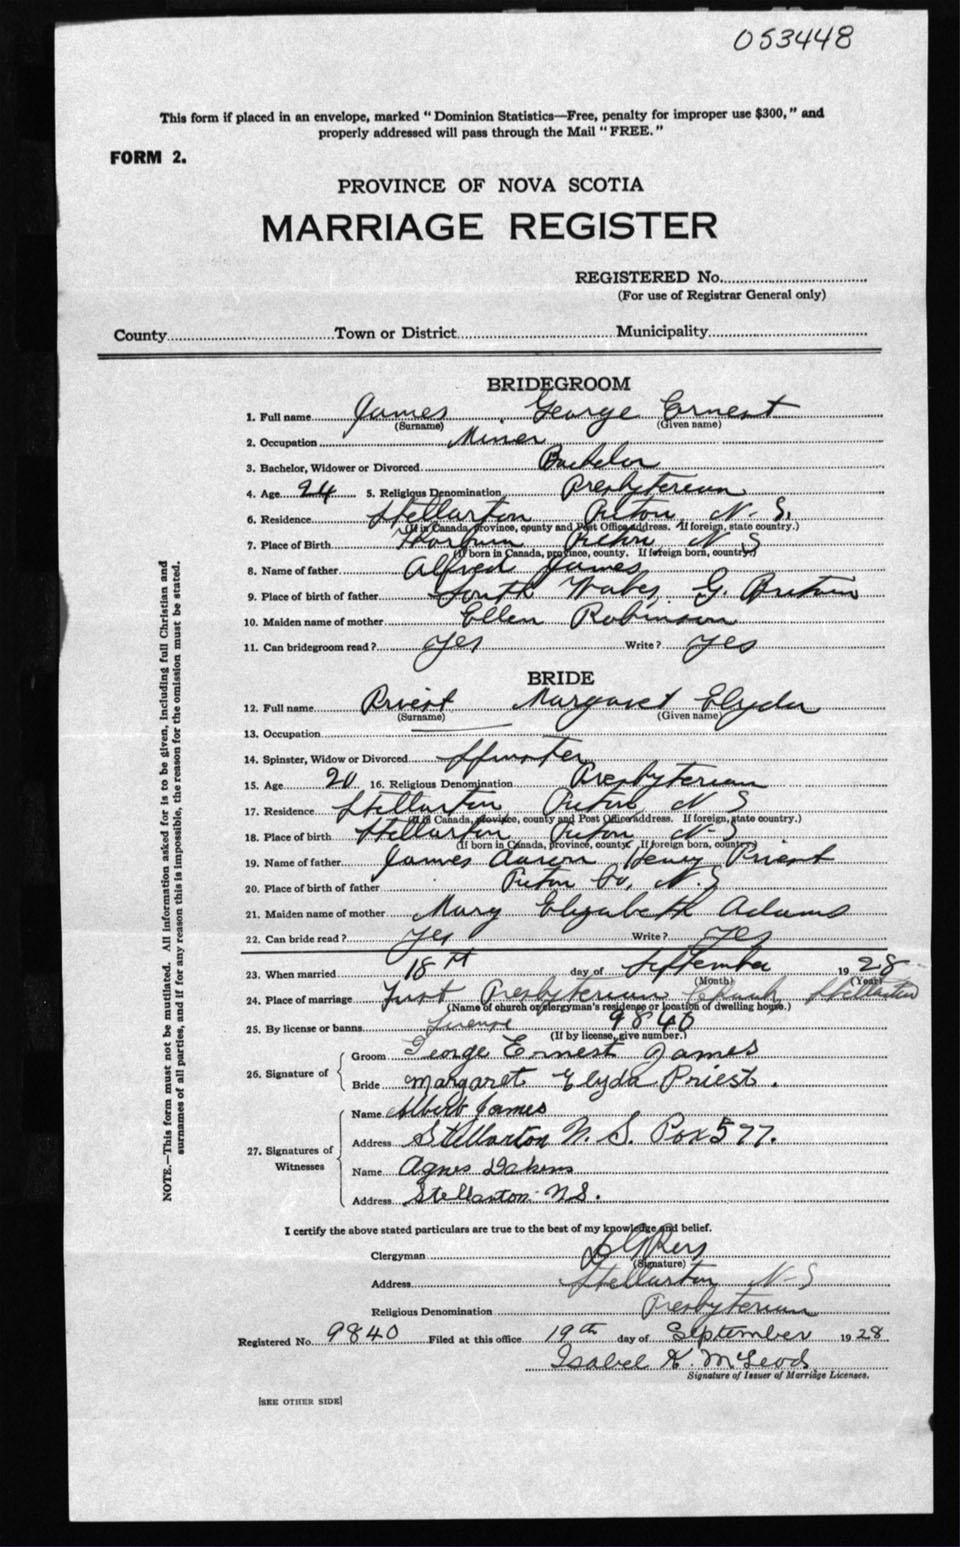 053448
This form if placed in an envelope, marked "Dominion Statistics—Free, penalty for improper use $300," and
properly addressed will pass through the Mail "FREE."
FORM 2.
PROVINCE OF NOVA SCOTIA
MARRIAGE REGISTER
REGISTERED No.
(For use of Registrar General only)
County Town or District Municipality
BRIDEGROOM
1. Full name James George Ernest
(Surname) (Given name)
2. Occupation Miner
3. Bachelor, Widower or Divorced Bachelor
4. Age 24 5. Religious Denomination Presbyterian
6. Residence Stellarton Pictou N. S.
(If in Canada, province, county and Post Office address. If foreign, state country.)
7. Place of Birth Thorburn Pictou N S
(If born in Canada, province, county. If foreign born, country.)
8. Name of father Alfred James
9. Place of birth of father South Wales, G. Britain
10. Maiden name of mother Ellen Robinson
11. Can bridegroom read? yes Write? yes
BRIDE
12. Full name Priest Margaret Elyda
(Surname) (Given name)
13. Occupation
14. Spinster, Widow or Divorced Spinster
15. Age 20 16. Religious Denomination Presbyterian
17. Residence Stellarton Pictou N S
(If in Canada, province, county and Post Office address. If foreign, state country.)
18. Place of birth Stellarton Pictou N-S
(If born in Canada, province, county. If foreign born, country)
19. Name of father James Aaron Henry Priest
20. Place of birth of father Pictou Co, N. S
21. Maiden name of mother Mary Elizabeth Adams
22. Can bride read? yes Write? yes
23. When married 18th day of September 1928
(Month) (Year)
24. Place of marriage First Presbyterian Church Stellarton
(Name of church or clergyman's residence or location of dwelling house.)
25. By license or banns License 9840
(If by license, give number.)
26. Signature of Groom George Ernest James
Bride Margaret Elyda Priest.
27. Signatures of Witnesses Name Albert James
Address Stellarton N. S. Box 577.
Name Agnes Dakens
Address Stellarton N S.
I certify the above stated particulars are true to the best of my knowledge and belief.
Clergyman
(Signature)
Address Stellarton N-S
Religious Denomination Presbyterian
Registered No. 9840 Filed at this office 19th day of September 1928
Isabel K. McLeod
Signature of Issuer of Marriage Licenses.
[SEE OTHER SIDE]
NOTE.—This form must not be mutilated. All information asked for is to be given, including full Christian and
surnames of all parties, and if for any reason this is impossible, the reason for the omission must be stated.